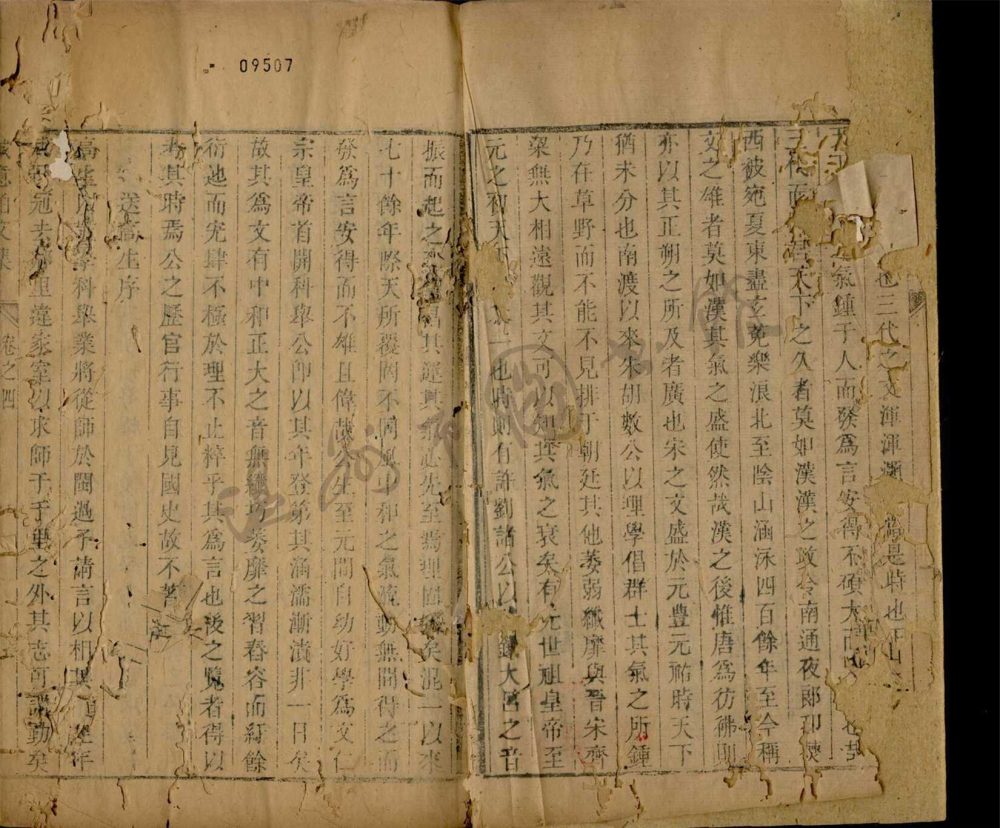 09507
也三代之文渾渾 爲是時也
氣鍾于人而發爲言安得不碩大而
三代而 天下之久者莫如漢漢之政令南通夜郎邛僰
西被宛夏東盡玄菟樂浪北至陰山涵泳四百餘年至今稱
文之雄者莫如漢其氣之盛使然哉漢之後惟唐爲彷彿則
亦以其正朔之所及者廣也宋之文盛於元豐元祐時天下
猶未分也南渡以來朱胡數公以理學倡群士其氣之所鍾
乃在草野而不能不見排于朝廷其他萎弱纖靡與晉宋齊
梁無大相遠觀其文可以知其氣之衰矣有元世祖皇帝至
元之初天 一也時則有許劉諸公以 大之音
振而起之 昌其運其氣必先至焉理固 矣混一以來
七十餘年際天所覆罔不同風中和之氣流動無間得之而
發爲言安得而不雄且偉哉公生至元間自幼好學爲文仁
宗皇帝首開科舉公卽以其年登第其涵濡漸漬非一日矣
故其爲文有中和正大之音無纖巧萎靡之習舂容而紆餘
衍迤而宏肆不極於理不止粹乎其爲言也後之覽者得以
考其時焉公之歷官行事自見國史故不著
送高生序
高生 學科舉業將從師於閩過予請言以相其 生年
冠去鄉里違家室以求師于千里之外其志可謂勤矣
誠意伯文集 卷之四